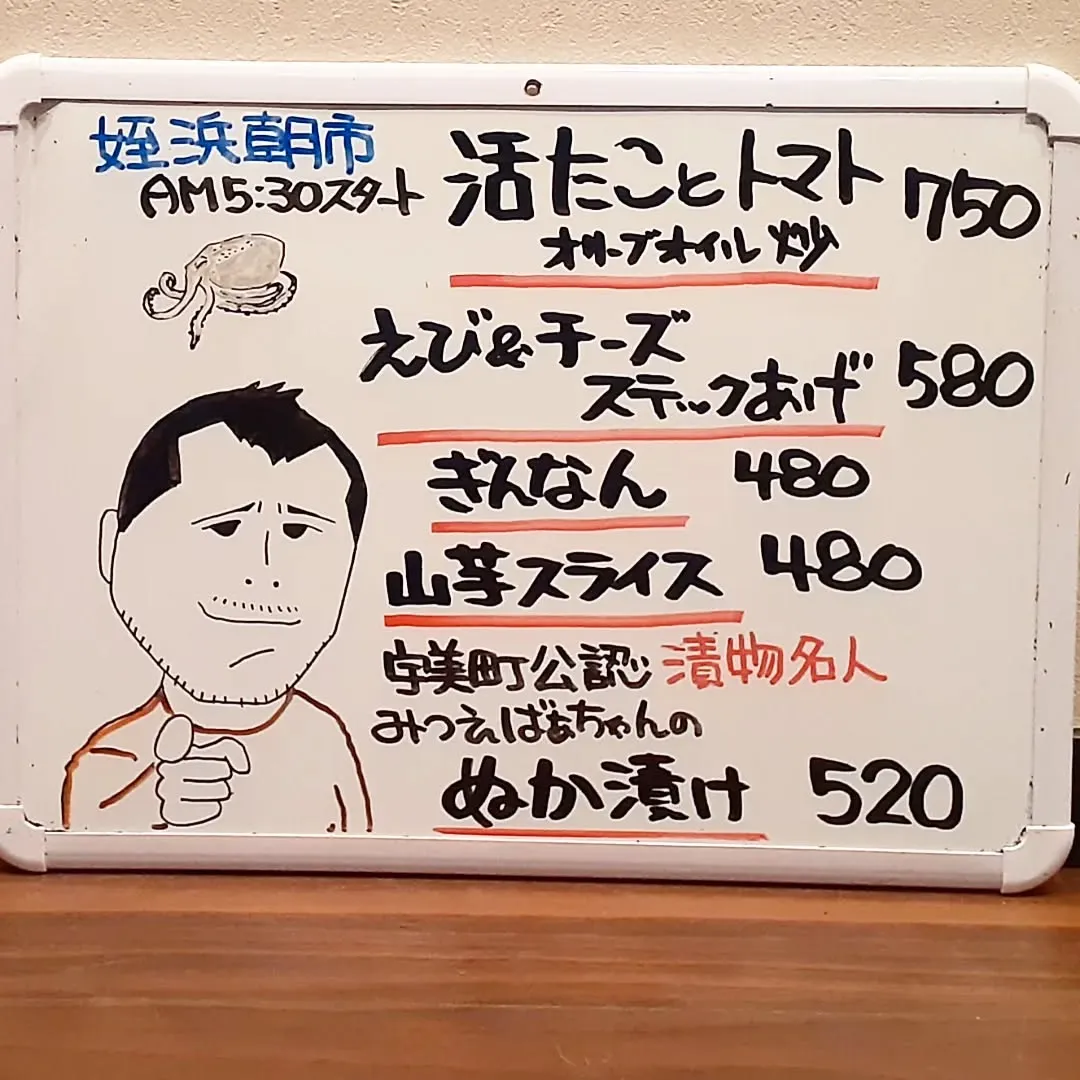 姪浜朝市
AM5:30スタート
活たことトマト 750
オリーブオイル炒
えび&チーズ
スティックあげ 580
ぎんなん 480
山芋スライス 480
宇美町公認 漬物名人
みつえばぁちゃんの
ぬか漬け 520